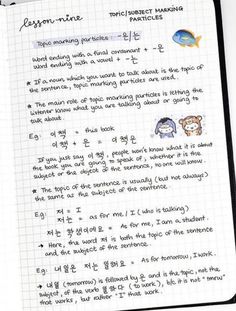 lesson nine
TOPIC/SUBJECT MARKING
PARTICLES
Topic marking particles -은/는
Word ending with a final consonant + -은
Word ending with a vowel + -는
* If a noun, which you want to talk about is the topic of
the sentence, topic marking particles are used.
* The main role of topic marking particles is letting the
listener know what you are talking about or going to
talk about.
Eg: 이 책 = this book
이 책 + 은 = 이 책은
If you just say 이 책, people won't know what it is about
the book you are going to speak of, whether it is the
subject or the object of the sentence, no one will know.
* The topic of the sentence is usually (but not always)
the same as the subject of the sentence.
Eg: 저 = I
저는 = as for me / I (who is talking)
→ 저는 학생이에요 = As for me, I am a student.
→ Here, the word 저 is both the topic of the sentence
and the subject of the sentence.
Eg: 내일은 저는 일해요 = As for tomorrow, I work.
→ 내일 (tomorrow) is followed by 은 and is the topic, not the
subject, of the verb 일하다 (to work), b/c it's not "tmrw"
that works, but rather "I" that work.